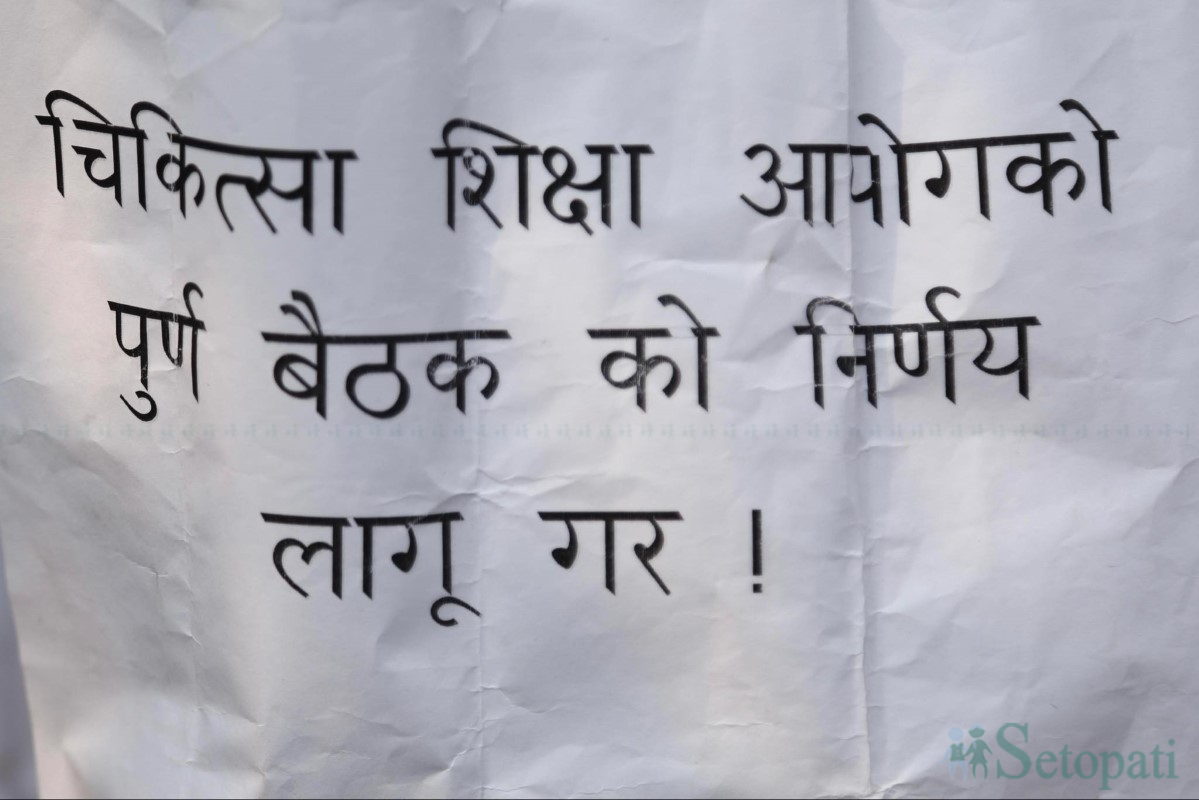 चिकित्सा शिक्षा आयोगको
पुर्ण बैठक को निर्णय
लागू गर !
Setopati